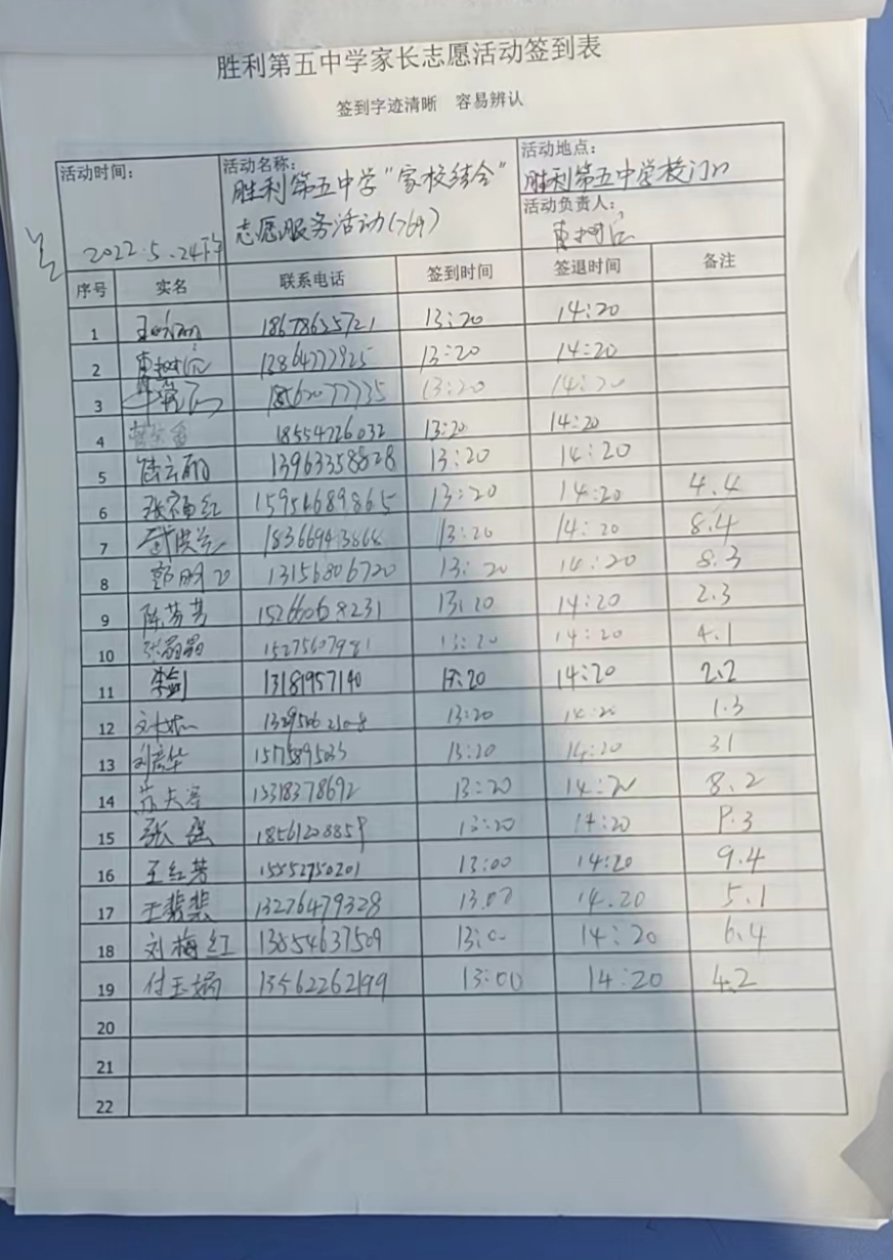 胜利第五中学家长志愿活动签到表
签到字迹清晰 容易辨认
活动时间: 2022.5.24下午
活动名称: 胜利第五中学"家校结合"
志愿服务活动(769)
活动地点:
胜利第五中学校门口
活动负责人:
序号 实名 联系电话 签到时间 签退时间 备注
1 18678655721 13:20 14:20
2 13864777925 13:20 14:20
3 18562077735 13:20 14:20
4 18554726032 13:20 14:20
5 13963358828 13:20 14:20
6 张福红 15954689865 13:20 14:20 4.4
7 13:20 14:20 8.4
8 13156806720 13:20 14:20 8.3
9 陈芳芳 15266068231 13:20 14:20 2.3
10 张晶晶 15275607981 13:20 14:20 4.1
11 李剑 13181957140 13:20 14:20 2.2
12 13:20 14:20 1.3
13 刘彦华 13:20 14:20 31
14 13318378692 13:20 14:20 8.2
15 张磊 18561208859 13:20 14:20 9.3
16 王红芳 15552750201 13:00 14:20 9.4
17 王裴裴 13276479328 13.00 14.20 5.1
18 刘梅红 13854637509 13:00 14:20 6.4
19 付玉娟 13562262199 13:00 14:20 4.2
20
21
22